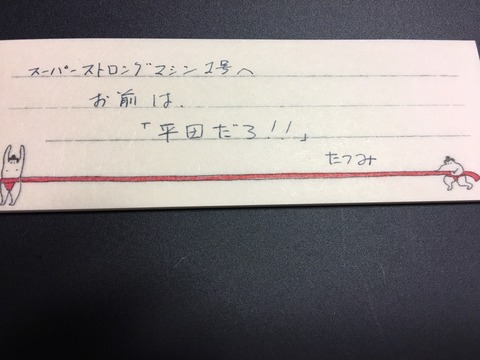 スーパーストロングマシン1号へ
お前は、
「平田だろ!!」
たつみ